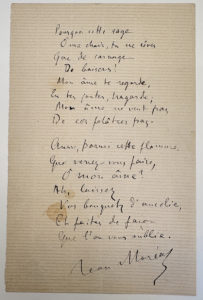 Pourquoi cette rage
O ma chair, tu ne rêves
Que de carnage
De baisers!
Mon âme te regarde,
En tes joutes, hagarde,
Mon âme ne veut pas
De ces folâtres pas.
Aussi, parmi cette flamme,
Que venez-vous faire,
O mon âme!
Ah, laissez
Vos bouquets d'ancolie,
Et faites de façon
Que l'on vous oublie.
Jean Moréas